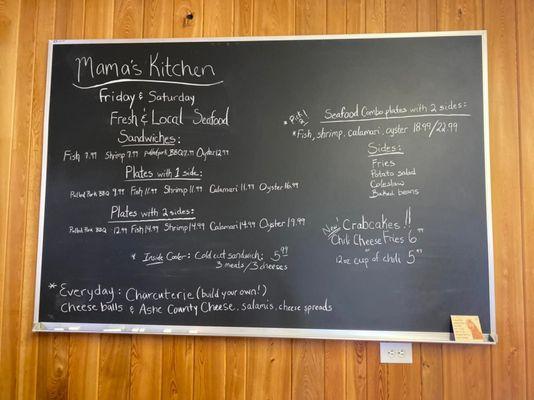 Mama's Kitchen
Friday & Saturday
Fresh & Local Seafood
Sandwiches:
Fish 7.99 Shrimp 7.99 pulled pork BBQ 7.99 Oyster 12.99
Plates with 1 side:
Pulled Pork BBQ 9.99 Fish 11.99 Shrimp 11.99 Calamari 11.99 Oyster 16.99
Plates with 2 sides:
Pulled Pork BBQ 12.99 Fish 14.99 Shrimp 14.99 Calamari 14.99 Oyster 19.99
* Inside Cooler: Cold cut sandwich: 5.99
3 meats/3 cheeses
* Everyday: Charcuterie (build your own!)
Cheese balls & Ashe County Cheese, salamis, cheese spreads
* Pick 2! Seafood Combo plates with 2 sides:
* Fish, shrimp, calamari, oyster 18.99/22.99
Sides:
Fries
Potato salad
Coleslaw
Baked beans
New! Crabcakes!!
Chili Cheese Fries 6.99
or
12oz cup of chili 5.99